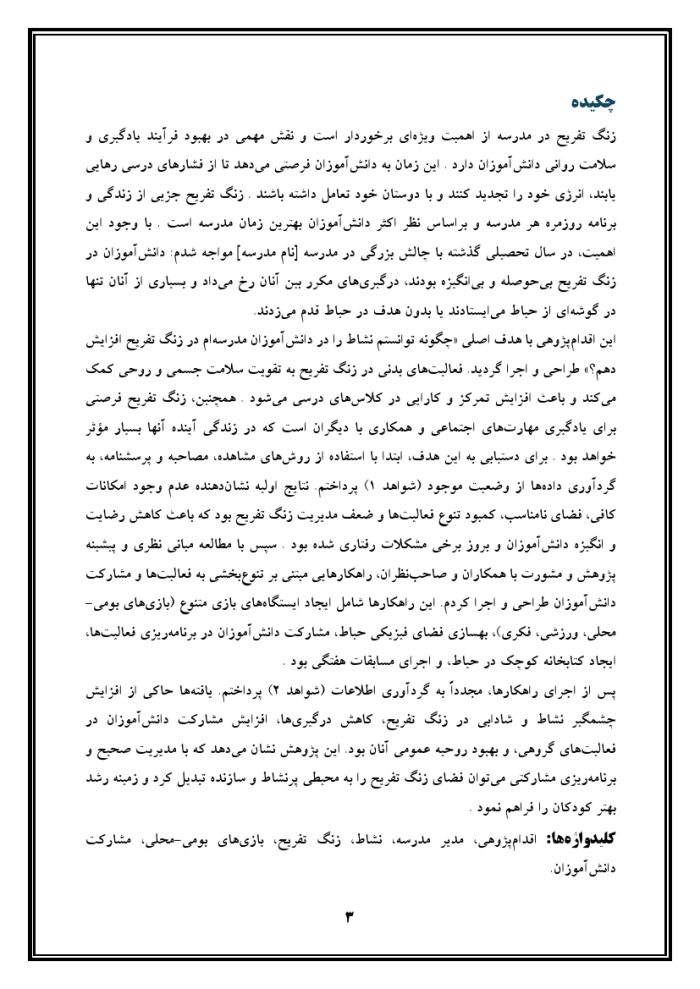 چکیده
زنگ تفریح در مدرسه از اهمیت ویژه‌ای برخوردار است و نقش مهمی در بهبود فرآیند یادگیری و
سلامت روانی دانش‌آموزان دارد . این زمان به دانش‌آموزان فرصتی می‌دهد تا از فشارهای درسی رهایی
یابند، انرژی خود را تجدید کنند و با دوستان خود تعامل داشته باشند . زنگ تفریح جزیی از زندگی و
برنامه روزمره هر مدرسه و براساس نظر اکثر دانش‌آموزان بهترین زمان مدرسه است . با وجود این
اهمیت، در سال تحصیلی گذشته با چالش بزرگی در مدرسه [نام مدرسه] مواجه شدم: دانش‌آموزان در
زنگ تفریح بی‌حوصله و بی‌انگیزه بودند، درگیری‌های مکرر بین آنان رخ می‌داد و بسیاری از آنان تنها
در گوشه‌ای از حیاط می‌ایستادند یا بدون هدف در حیاط قدم می‌زدند.
این اقدام‌پژوهی با هدف اصلی «چگونه توانستم نشاط را در دانش‌آموزان مدرسه‌ام در زنگ تفریح افزایش
دهم؟» طراحی و اجرا گردید. فعالیت‌های بدنی در زنگ تفریح به تقویت سلامت جسمی و روحی کمک
می‌کند و باعث افزایش تمرکز و کارایی در کلاس‌های درسی می‌شود . همچنین، زنگ تفریح فرصتی
برای یادگیری مهارت‌های اجتماعی و همکاری با دیگران است که در زندگی آینده آنها بسیار مؤثر
خواهد بود . برای دستیابی به این هدف، ابتدا با استفاده از روش‌های مشاهده، مصاحبه و پرسشنامه، به
گردآوری داده‌ها از وضعیت موجود (شواهد ۱) پرداختم. نتایج اولیه نشان‌دهنده عدم وجود امکانات
کافی، فضای نامناسب، کمبود تنوع فعالیت‌ها و ضعف مدیریت زنگ تفریح بود که باعث کاهش رضایت
و انگیزه دانش‌آموزان و بروز برخی مشکلات رفتاری شده بود . سپس با مطالعه مبانی نظری و پیشینه
پژوهش و مشورت با همکاران و صاحب‌نظران، راهکارهایی مبتنی بر تنوع‌بخشی به فعالیت‌ها و مشارکت
دانش‌آموزان طراحی و اجرا کردم. این راهکارها شامل ایجاد ایستگاه‌های بازی متنوع (بازی‌های بومی-
محلی، ورزشی، فکری)، بهسازی فضای فیزیکی حیاط، مشارکت دانش‌آموزان در برنامه‌ریزی فعالیت‌ها،
ایجاد کتابخانه کوچک در حیاط، و اجرای مسابقات هفتگی بود .
پس از اجرای راهکارها، مجدداً به گردآوری اطلاعات (شواهد ۲) پرداختم. یافته‌ها حاکی از افزایش
چشمگیر نشاط و شادابی در زنگ تفریح، کاهش درگیری‌ها، افزایش مشارکت دانش‌آموزان در
فعالیت‌های گروهی، و بهبود روحیه عمومی آنان بود. این پژوهش نشان می‌دهد که با مدیریت صحیح و
برنامه‌ریزی مشارکتی می‌توان فضای زنگ تفریح را به محیطی پرنشاط و سازنده تبدیل کرد و زمینه رشد
بهتر کودکان را فراهم نمود .
کلیدواژه‌ها: اقدام‌پژوهی، مدیر مدرسه، نشاط، زنگ تفریح، بازی‌های بومی-محلی، مشارکت
دانش‌آموزان.
۳